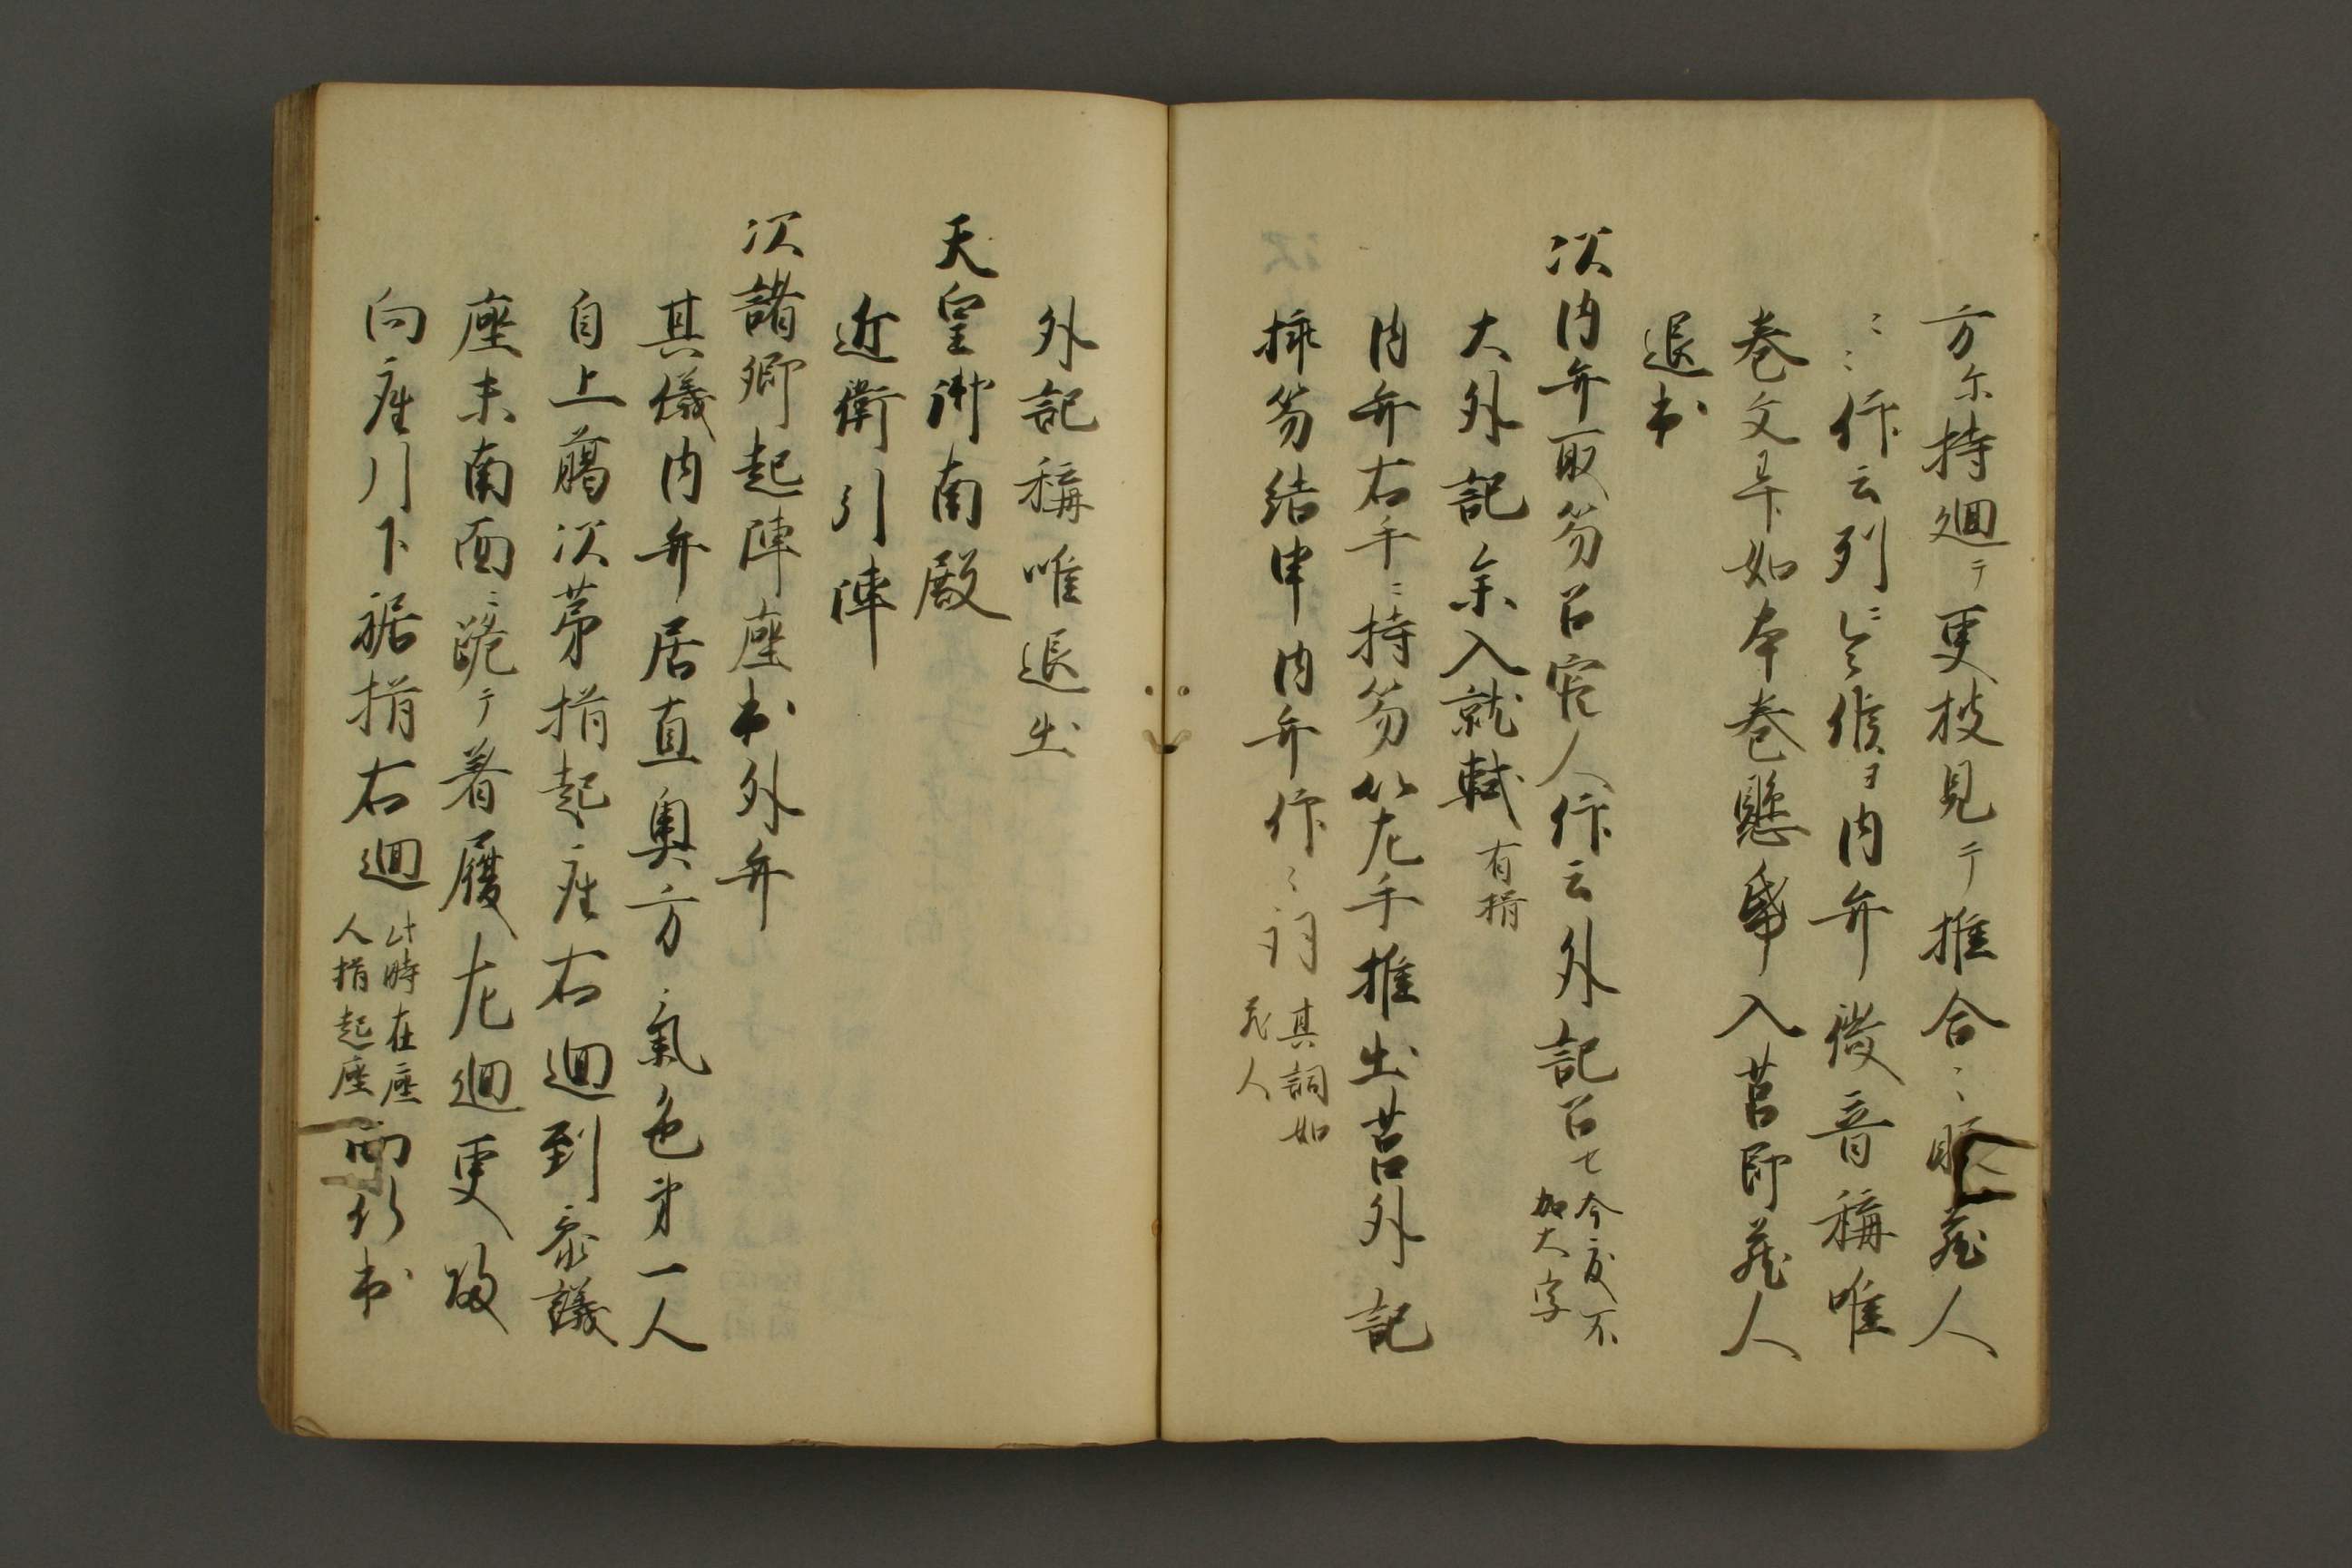 方尓持廻テ更披見テ推合〻〻蔵人
〻〻仰云列ニ候ヨ内弁微音称唯
巻文畢如本巻懸帋入莒即蔵人
退出
次内弁取笏召官人仰云外記召セ今度不
加大字
大外記参入就軾有揖
内弁右手ニ持笏以左手推出莒外記
挿笏結申内弁仰〻詞其詞如
蔵人
外記称唯退出
天皇御南殿
近衛引陣
次諸卿起陣座出外弁
其儀内弁居直奥方気色第一人
自上臈次第揖起座右廻到参議
座末南面ニ跪テ着履左廻更帰
向座引下裾揖右廻此時在座
人揖起座而行出